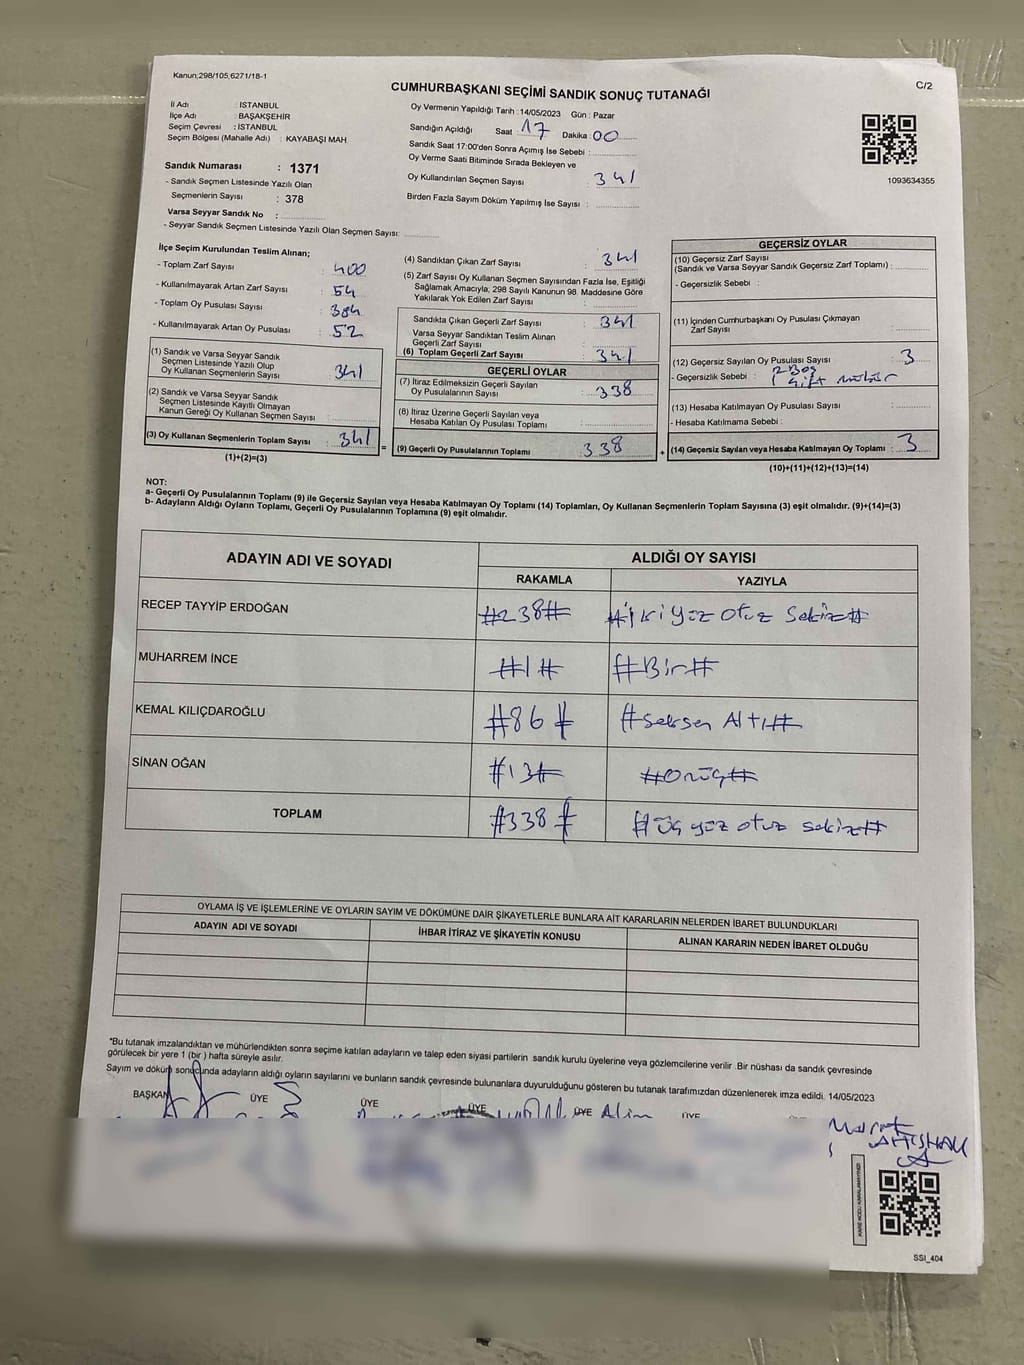 Kanun;298/105,6271/18-1
C/2
CUMHURBAŞKANI SEÇİMİ SANDIK SONUÇ TUTANAĞI
İl Adı : İSTANBUL
İlçe Adı : BAŞAKŞEHİR
Seçim Çevresi : İSTANBUL
Seçim Bölgesi (Mahalle Adı) : KAYABAŞI MAH
Sandık Numarası : 1371
- Sandık Seçmen Listesinde Yazılı Olan
Seçmenlerin Sayısı : 378
Varsa Seyyar Sandık No :
- Seyyar Sandık Seçmen Listesinde Yazılı Olan Seçmen Sayısı:
Oy Vermenin Yapıldığı Tarih : 14/05/2023 Gün : Pazar
Sandığın Açıldığı Saat : 17 Dakika : 00
Sandık Saat 17:00'den Sonra Açılmış İse Sebebi :
Oy Verme Saati Bitiminde Sırada Bekleyen ve
Oy Kullandırılan Seçmen Sayısı : 341
Birden Fazla Sayım Döküm Yapılmış İse Sayısı :
1093634355
İlçe Seçim Kurulundan Teslim Alınan;
- Toplam Zarf Sayısı : 400
- Kullanılmayarak Artan Zarf Sayısı : 54
- Toplam Oy Pusulası Sayısı : 384
- Kullanılmayarak Artan Oy Pusulası : 52
(1) Sandık ve Varsa Seyyar Sandık
Seçmen Listesinde Yazılı Olup
Oy Kullanan Seçmenlerin Sayısı : 341
(2) Sandık ve Varsa Seyyar Sandık
Seçmen Listesinde Kayıtlı Olmayan
Kanun Gereği Oy Kullanan Seçmen Sayısı :
(3) Oy Kullanan Seçmenlerin Toplam Sayısı : 341
(1)+(2)=(3)
(4) Sandıktan Çıkan Zarf Sayısı : 341
(5) Zarf Sayısı Oy Kullanan Seçmen Sayısından Fazla İse, Eşitliği
Sağlamak Amacıyla; 298 Sayılı Kanunun 98. Maddesine Göre
Yakılarak Yok Edilen Zarf Sayısı :
Sandıkta Çıkan Geçerli Zarf Sayısı : 341
Varsa Seyyar Sandıktan Teslim Alınan
Geçerli Zarf Sayısı :
(6) Toplam Geçerli Zarf Sayısı : 341
GEÇERLİ OYLAR
(7) İtiraz Edilmeksizin Geçerli Sayılan
Oy Pusulalarının Sayısı : 338
(8) İtiraz Üzerine Geçerli Sayılan veya
Hesaba Katılan Oy Pusulası Toplamı :
= (9) Geçerli Oy Pusulalarının Toplamı : 338
GEÇERSİZ OYLAR
(10) Geçersiz Zarf Sayısı
(Sandık ve Varsa Seyyar Sandık Geçersiz Zarf Toplamı) :
- Geçersizlik Sebebi :
(11) İçinden Cumhurbaşkanı Oy Pusulası Çıkmayan
Zarf Sayısı :
(12) Geçersiz Sayılan Oy Pusulası Sayısı : 3
- Geçersizlik Sebebi : 2 Boş
1 Çift mühür
(13) Hesaba Katılmayan Oy Pusulası Sayısı :
- Hesaba Katılmama Sebebi :
+ (14) Geçersiz Sayılan veya Hesaba Katılmayan Oy Toplamı : 3
(10)+(11)+(12)+(13)=(14)
NOT:
a- Geçerli Oy Pusulalarının Toplamı (9) ile Geçersiz Sayılan veya Hesaba Katılmayan Oy Toplamı (14) Toplamları, Oy Kullanan Seçmenlerin Toplam Sayısına (3) eşit olmalıdır. (9)+(14)=(3)
b- Adayların Aldığı Oyların Toplamı, Geçerli Oy Pusulalarının Toplamına (9) eşit olmalıdır.
ADAYIN ADI VE SOYADI ALDIĞI OY SAYISI
RAKAMLA YAZIYLA
RECEP TAYYİP ERDOĞAN #238# #iki yüz otuz sekiz#
MUHARREM İNCE #1# #Bir#
KEMAL KILIÇDAROĞLU #86# #seksen Altı#
SİNAN OĞAN #13# #onüç#
TOPLAM #338# #üç yüz otuz sekiz#
OYLAMA İŞ VE İŞLEMLERİNE VE OYLARIN SAYIM VE DÖKÜMÜNE DAİR ŞİKAYETLERLE BUNLARA AİT KARARLARIN NELERDEN İBARET BULUNDUKLARI
ADAYIN ADI VE SOYADI İHBAR İTİRAZ VE ŞİKAYETİN KONUSU ALINAN KARARIN NEDEN İBARET OLDUĞU
*Bu tutanak imzalandıktan ve mühürlendikten sonra seçime katılan adayların ve talep eden siyasi partilerin sandık kurulu üyelerine veya gözlemcilerine verilir. Bir nüshası da sandık çevresinde
görülecek bir yere 1 (bir) hafta süreyle asılır.
Sayım ve döküm sonucunda adayların aldığı oyların sayılarını ve bunların sandık çevresinde bulunanlara duyurulduğunu gösteren bu tutanak tarafımızdan düzenlenerek imza edildi. 14/05/2023
BAŞKAN ÜYE ÜYE ÜYE ÜYE ÜYE
Murat
SSI_404